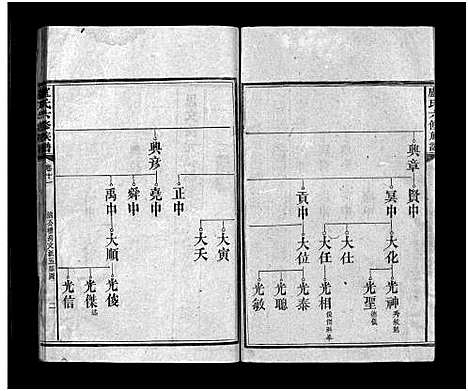 盧氏六修族譜
興章
賢中
冥中
貢中
大化
大仕
大任
大位
光神
光聖
光相
光泰
光聰
光敏
盧氏六修族譜
卷十一
二
興彦
正中
堯中
舜中
禹中
大寅
大天
大順
光俊
光傑
光信